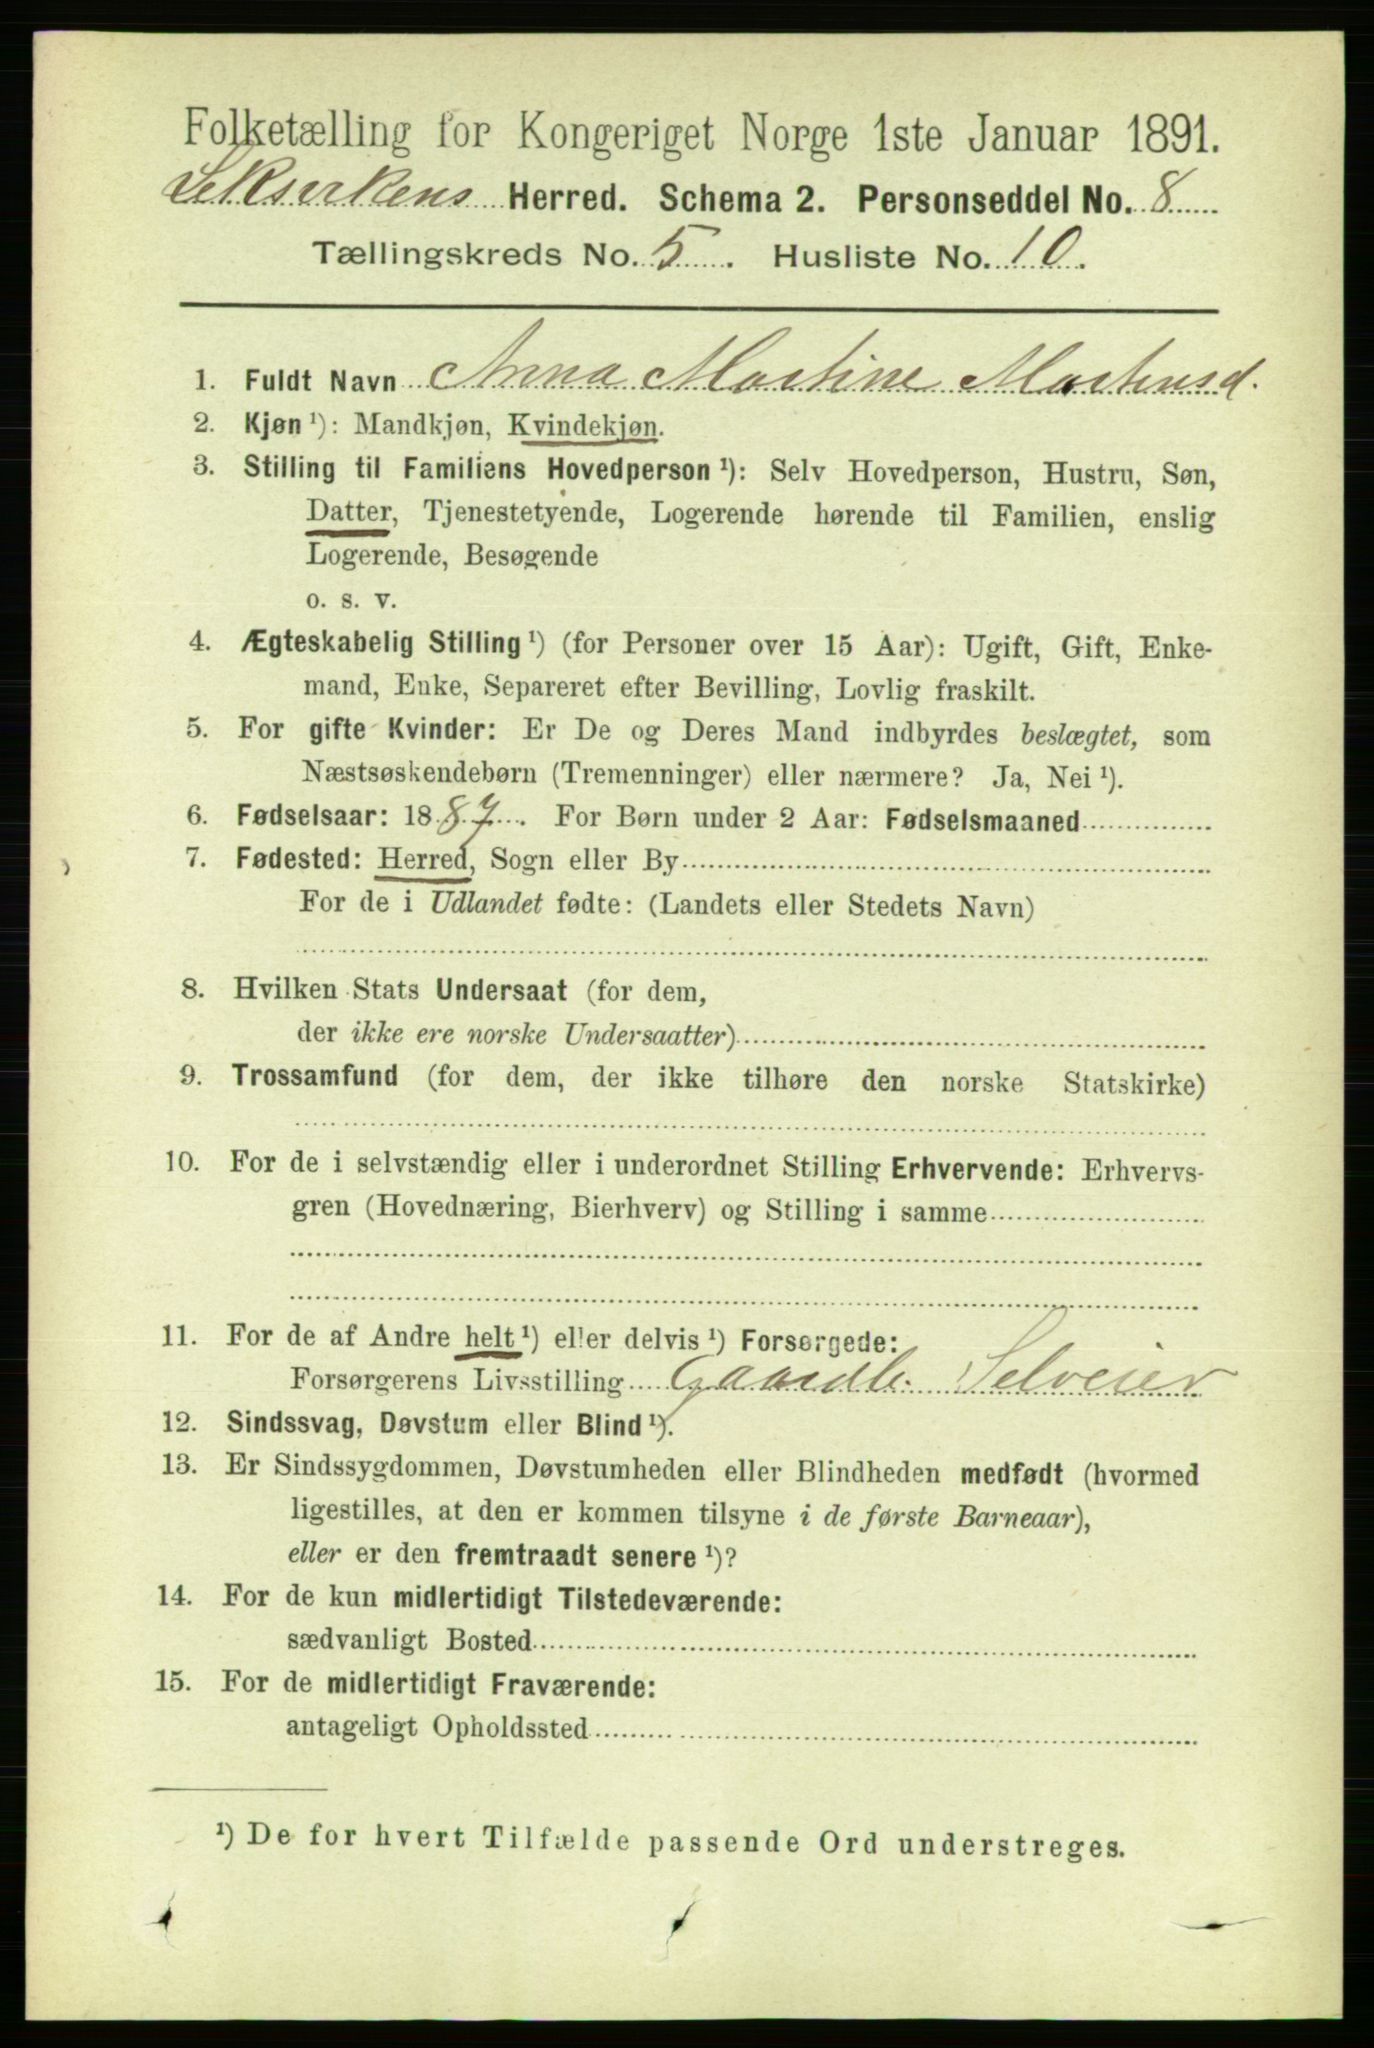 Folketælling for Kongeriget Norge 1ste Januar 1891.
Leksvikens Herred. Schema 2. Personseddel No. 8
Tællingskreds No. 5. Husliste No. 10.
1. Fuldt Navn Anna Martine Martinsd.
2. Kjøn ¹): Mandkjøn, Kvindekjøn.
3. Stilling til Familiens Hovedperson ¹): Selv Hovedperson, Hustru, Søn,
Datter, Tjenestetyende, Logerende hørende til Familien, enslig
Logerende, Besøgende
o. s. v.
4. Ægteskabelig Stilling ¹) (for Personer over 15 Aar): Ugift, Gift, Enke-
mand, Enke, Separeret efter Bevilling, Lovlig fraskilt.
5. For gifte Kvinder: Er De og Deres Mand indbyrdes beslægtet, som
Næstsøskendebørn (Tremenninger) eller nærmere? Ja, Nei ¹).
6. Fødselsaar: 1887. For Børn under 2 Aar: Fødselsmaaned
7. Fødested: Herred, Sogn eller By
For de i Udlandet fødte: (Landets eller Stedets Navn)
8. Hvilken Stats Undersaat (for dem,
der ikke ere norske Undersaatter)
9. Trossamfund (for dem, der ikke tilhøre den norske Statskirke)
10. For de i selvstændig eller i underordnet Stilling Erhvervende: Erhvervs-
gren (Hovednæring, Bierhverv) og Stilling i samme
11. For de af Andre helt ¹) eller delvis ¹) Forsørgede:
Forsørgerens Livsstilling Gaardb. Selveier
12. Sindssvag, Døvstum eller Blind ¹).
13. Er Sindssygdommen, Døvstumheden eller Blindheden medfødt (hvormed
ligestilles, at den er kommen tilsyne i de første Barneaar),
eller er den fremtraadt senere ¹)?
14. For de kun midlertidigt Tilstedeværende:
sædvanligt Bosted
15. For de midlertidigt Fraværende:
antageligt Opholdssted
¹) De for hvert Tilfælde passende Ord understreges.